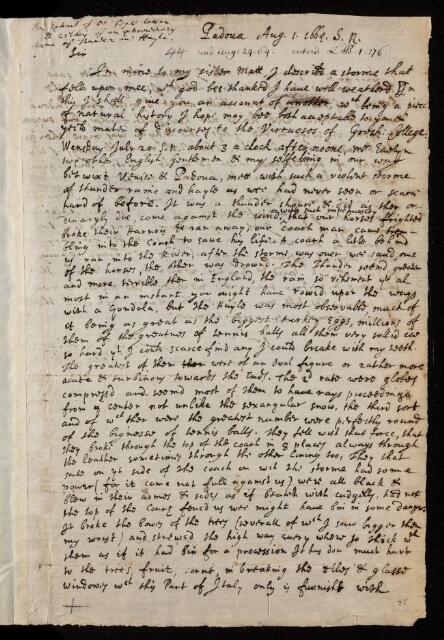 An Extract of Dr
to Mr Oldenb: of an extraordinary
storme of thunder and Hayle.
Padoua Aug. 1. 1669. S. N.
Sir
44 read Aug: 29. 69. enterd L B. 3. 176.
In mine to my sister Matt I describd a storme that
fell upon mee, wch god bee thanked I have well weatherd. In
this I shall give you an account of another wch being a piece
of natural history I hope may bee both acceptable to you &
yeild matter of discourses to the Virtuosos of Gresh: College.
Wensday July 20 S.N. about 3 a clock afternoone, Mr Eaelyn
two other English gentlemen & my selfe being in our way
betwixt Venice & Padoua, mett with such a violent storme
of thunder raine and hayle as wee had never seen or scarce
heard of before. It was a thunder shour & did as they or
dinaryly doe, come against the wind, with such impetuosity
that our horses frighted
broke their harnois & ran away, our coach man came
bling into the coach to save his life. A coach a litle behind
us ran into the River, after the storme was over wee saved one
of the horses, the other was drownd. The thunder seemd greater
and more terrible then in England, the rain so vehement yt al
most in an instant you might have rowed upon the ways
with a Gondola; but the Hayle was most observable, much of
it being as great as the biggest turkey Eggs, millions of
them of the greatnes of tennis balls all them very solid ice
so hard, yt I could scarce find any I could breake with my teeth.
The greatest of them were of an Oval figure or rather more
acute & turbinous towards the Ends. The 2d rate were globes
compress'd and seemd most of them to have rays proceeding
from ye center not unlike the sexangular snow, the third sort
and of wch ther were the greatest number were perfectly round
of the bignesse of tennis balls. they fell with that force, that
they broke through the top of the coach in 8 places always through
the leather sometimes through the other lining too, They that
sate on yt side of the coach on wch the storme had some
power (for it came not full against us) were all black &
blew in their armes & sides as if beaten with cudgells, had not
the top of the Coach fenced us wee might have bin in some danger.
It broke the bows of the trees (severall of wch I saw bigger then
my wrest) and strewed the high way every where so thick wth
them as if it had bin for a procession. It has don much hurt
to the trees, fruit, corne, in breaking the tiles & glasse
windows wch this Part of Italy only is furnisht with